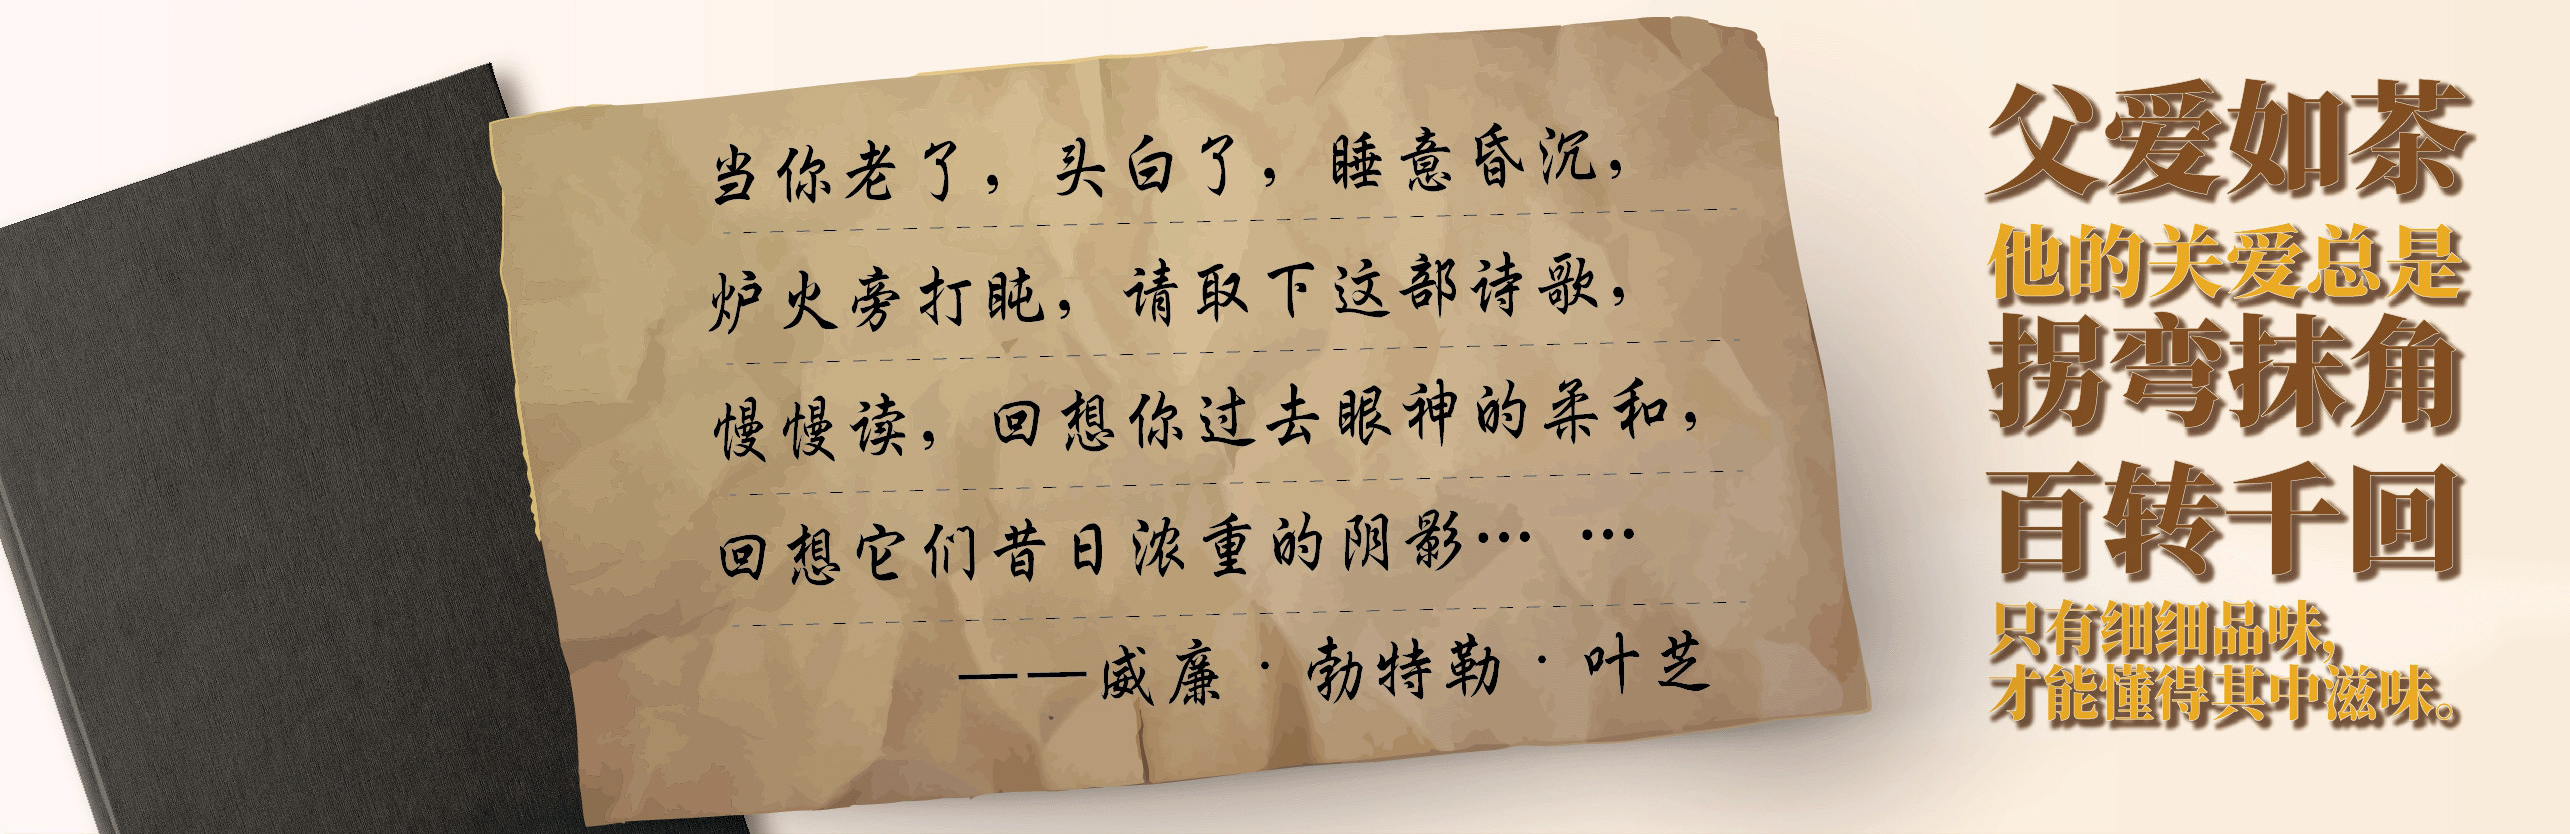 当你老了，头白了，睡意昏沉，
炉火旁打盹，请取下这部诗歌，
慢慢读，回想你过去眼神的柔和，
回想它们昔日浓重的阴影… …
——威廉·勃特勒·叶芝
父爱如茶
他的关爱总是
拐弯抹角
百转千回
只有细细品味，
才能懂得其中滋味。